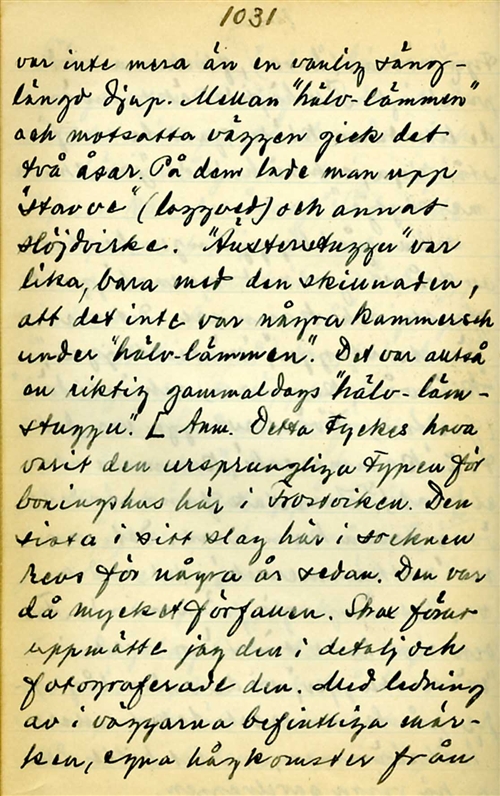 1031
var inte mera än en vanlig säng-
längd djup. Mellan "hälv-lämmen"
och motsatta väggen gick det
två åsar. På dem lade man upp
"stavve" (laggved) och annat
slöjdvirke. "Austerstuggu" var
lika, bara med den skillnaden,
att det inte var några kammersch
under "hälv-lämmen". Det var alltså
en riktig gammaldags "hälv-läm-
stuggu". [ Anm. Detta tyckes hava
varit den ursprungliga typen för
boningshus här i Frostviken. Den
sista i sitt slag här i socknen
revs för några år sedan. Den var
då mycket förfallen. Strax förut
uppmätte jag den i detalj och
fotograferade den. Med ledning
av i väggarna befintliga mär-
ken, egna hågkomster från